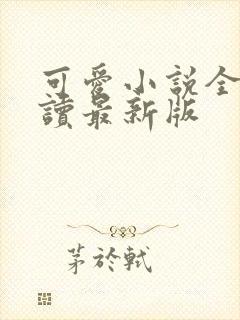 可愛小說全
讀最新版
茅於軾